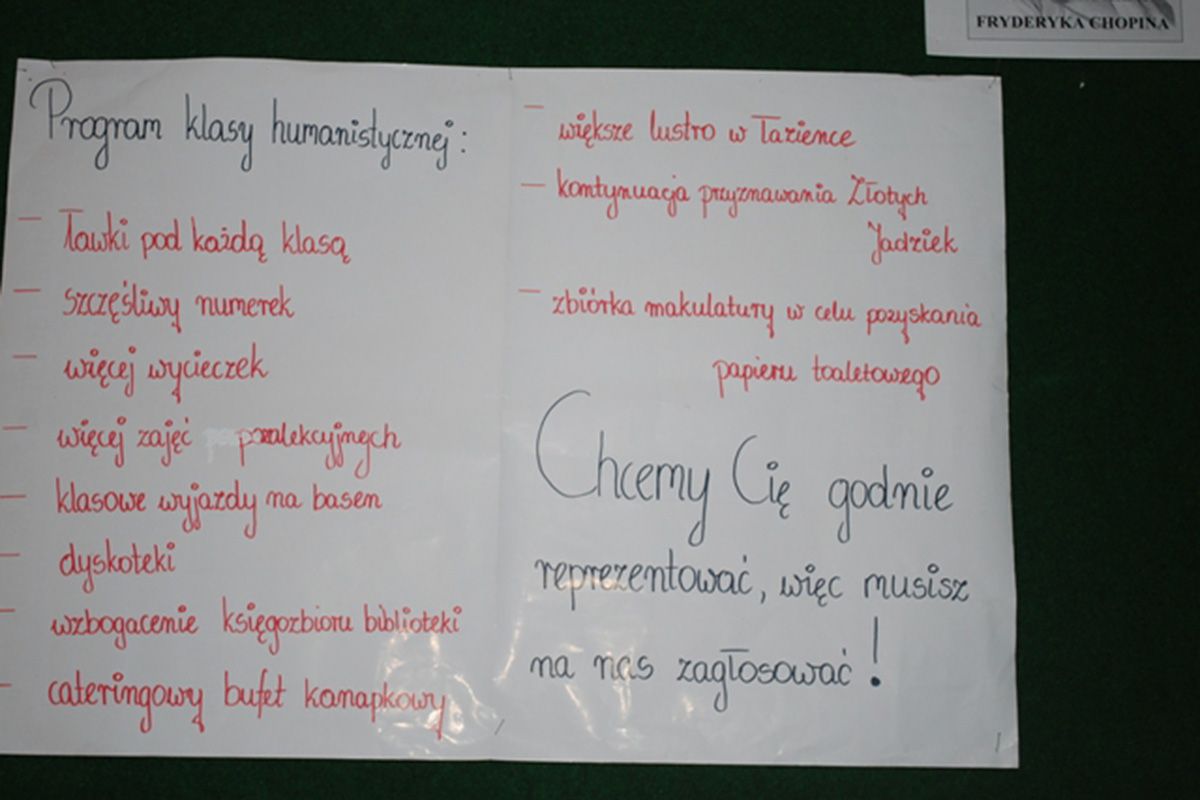 FRYDERYKA CHOPINA
Program klasy humanistycznej:
– ławki pod każdą klasą
– szczęśliwy numerek
– więcej wycieczek
– więcej zajęć pozalekcyjnych
– klasowe wyjazdy na basen
– dyskoteki
– wzbogacenie księgozbioru biblioteki
– cateringowy bufet kanapkowy
– większe lustro w łazience
– kontynuacja przyznawania Złotych
Jadziek
– zbiórka makulatury w celu pozyskania
papieru toaletowego
Chcemy Cię godnie
reprezentować, więc musisz
na nas zagłosować!